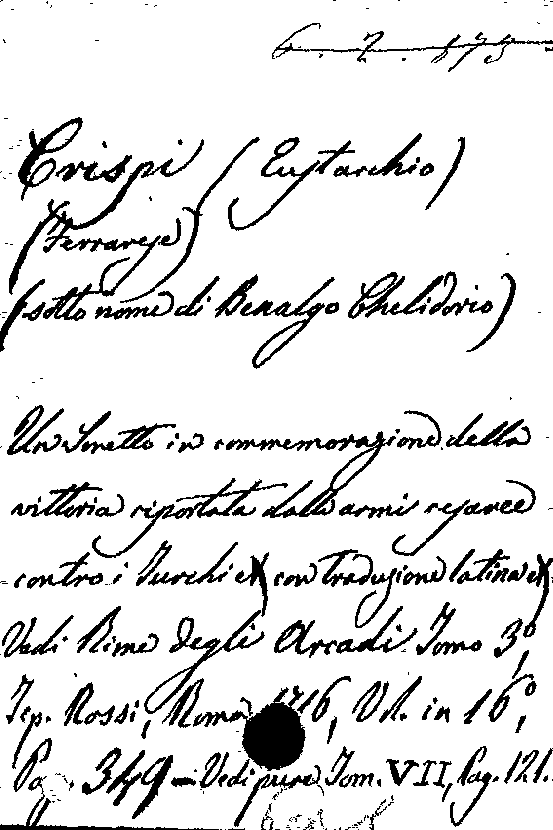 6. 2. 875
Crispi (Eustacchio)
(Ferrarese)
(sotto nome di Benalgo Chelidorio)
Un Sonetto in commemorazione della
vittoria riportata dalle armi cesaree
contro i Turchi (con traduzione latina)
Vedi Rime degli Arcadi Tomo 3º,
Tip. Rossi, Roma 1716, Vol. in 16º,
Pag. 349 - Vedi pure Tom. VII, Pag. 121.